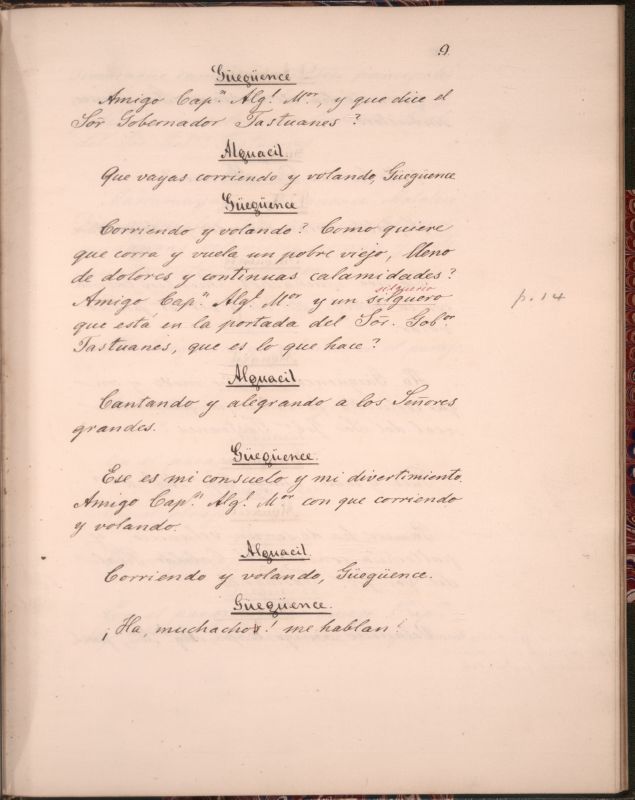 9.
Güegüence
Amigo Capⁿ Alg.ˡ Mᵒʳ, y que dice el
Sõr Gobernador Tastuanes?
Alguacil
Que vayas corriendo y volando, Güegüence
Güegüence
Corriendo y volando? Como quiere
que corra y vuela un pobre viejo, lleno
de dolores y continuas calamidades?
silguerio
Amigo Cap.ⁿ Alg.ˡ Mᵒʳ y un silguero
p. 14
que está en la portada del Sõr. Gob.ᵒʳ
Tastuanes, que es lo que hace?
Alguacil
Cantando y alegrando a los Señores
grandes.
Güegüence.
Ese es mi consuelo y mi divertimiento.
Amigo Cap.ⁿ Alg.ˡ Mᵒʳ con que corriendo
y volando.
Alguacil.
Corriendo y volando, Güegüence.
Güegüence.
¡Ha, muchachos! me hablan!